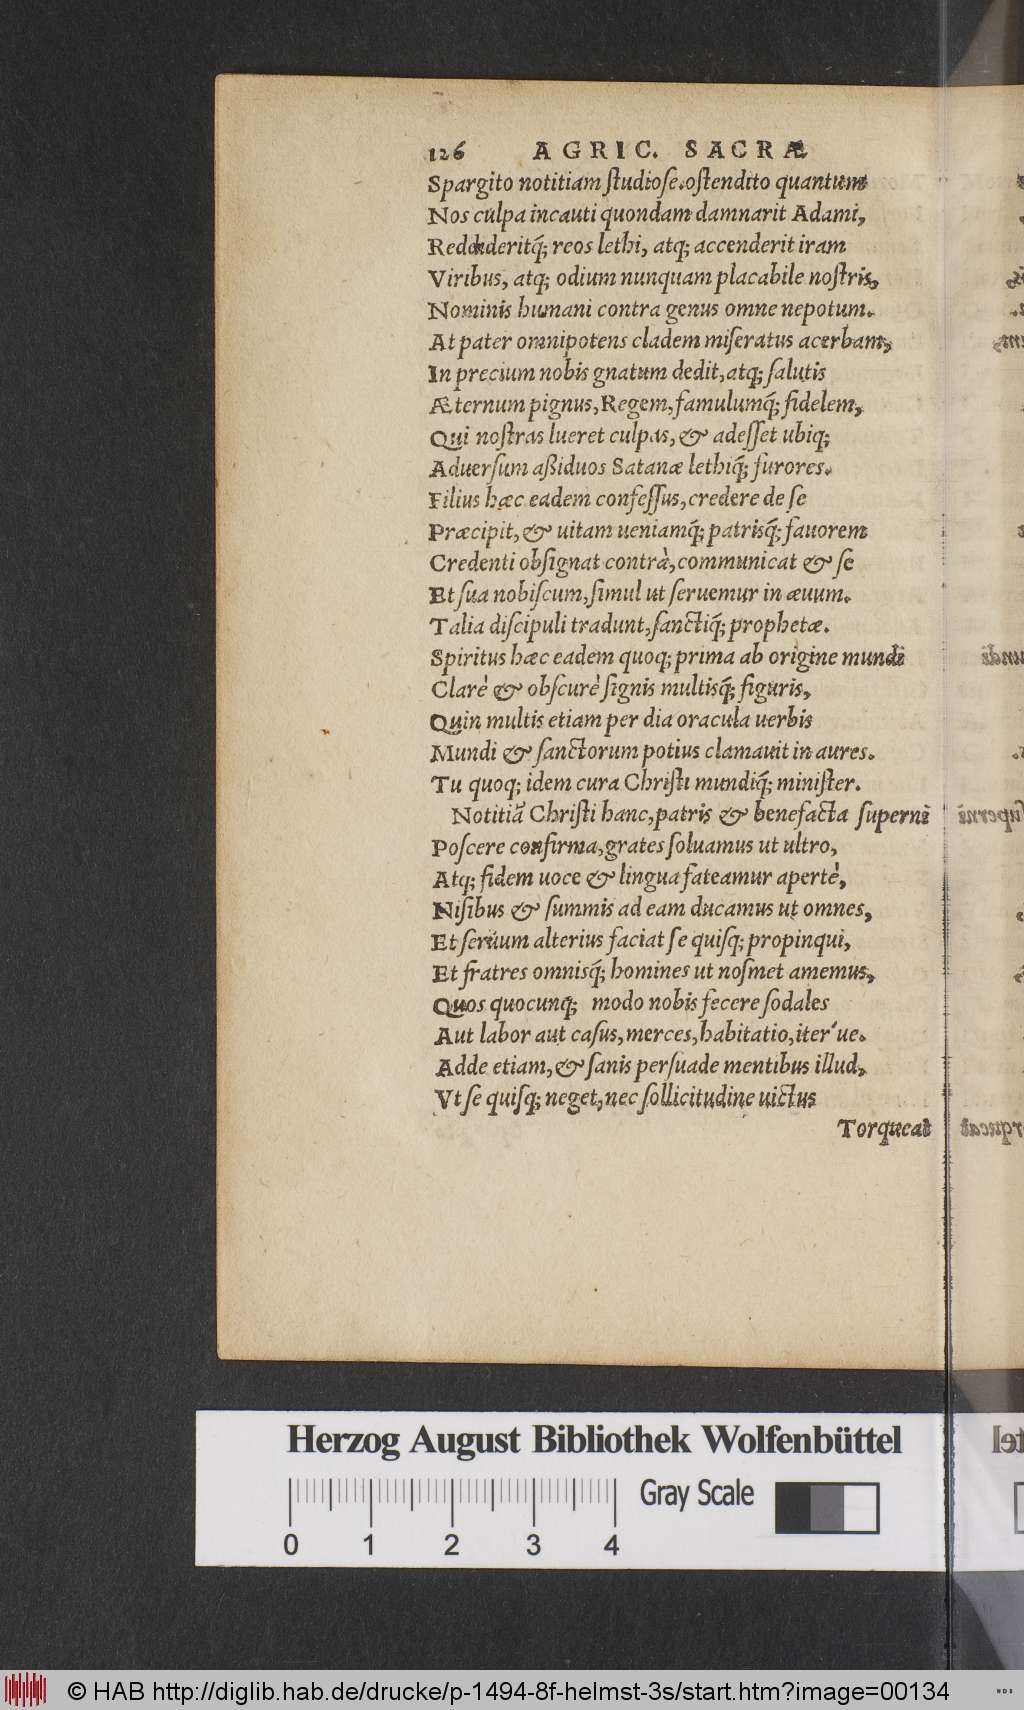 126 AGRIC. SACRÆ
Spargito notitiam ſtudioſe.oſtendito quantum
Nos culpa incauti quondam damnarit Adami,
Reddideritq́; reos lethi, atq; accenderit iram
Viribus, atq; odium nunquam placabile noſtris,
Nominis humani contra genus omne nepotum.
At pater omnipotens cladem miſeratus acerbam,
In precium nobis gnatum dedit, atq; ſalutis
Æternum pignus, Regem, famulumq́; fidelem,
Qui noſtras lueret culpas, & adeſſet ubiq;
Aduerſum aßiduos Satanæ lethiq́; furores.
Filius hæc eadem confeſſus, credere de ſe
Præcipit, & uitam ueniamq́; patrisq́; fauorem
Credenti obſignat contrà, communicat & ſe
Et ſua nobiſcum, ſimul ut ſeruemur in æuum.
Talia diſcipuli tradunt, ſanctiq́; prophetæ.
Spiritus hæc eadem quoq; prima ab origine mundi
Clarè & obſcurè ſignis multisq́; figuris,
Quin multis etiam per dia oracula uerbis
Mundi & ſanctorum potius clamauit in aures.
Tu quoq; idem cura Chriſti mundiq́; miniſter.
Notitiã Chriſti hanc, patris & benefacta ſuperni
Poſcere confirma, grates ſoluamus ut ultro,
Atq; fidem uoce & lingua fateamur apertè,
Niſibus & ſummis ad eam ducamus ut omnes,
Et ſeruum alterius faciat ſe quiſq; propinqui,
Et fratres omnisq́; homines ut noſmet amemus,
Quos quocunq; modo nobis fecere ſodales
Aut labor aut caſus, merces, habitatio, iter'ue.
Adde etiam, & ſanis perſuade mentibus illud,
Vt ſe quiſq; neget, nec ſollicitudine uictus
Torqueat
Herzog August Bibliothek Wolfenbüttel
Gray Scale
0 1 2 3 4
© HAB http://diglib.hab.de/drucke/p-1494-8f-helmst-3s/start.htm?image=00134